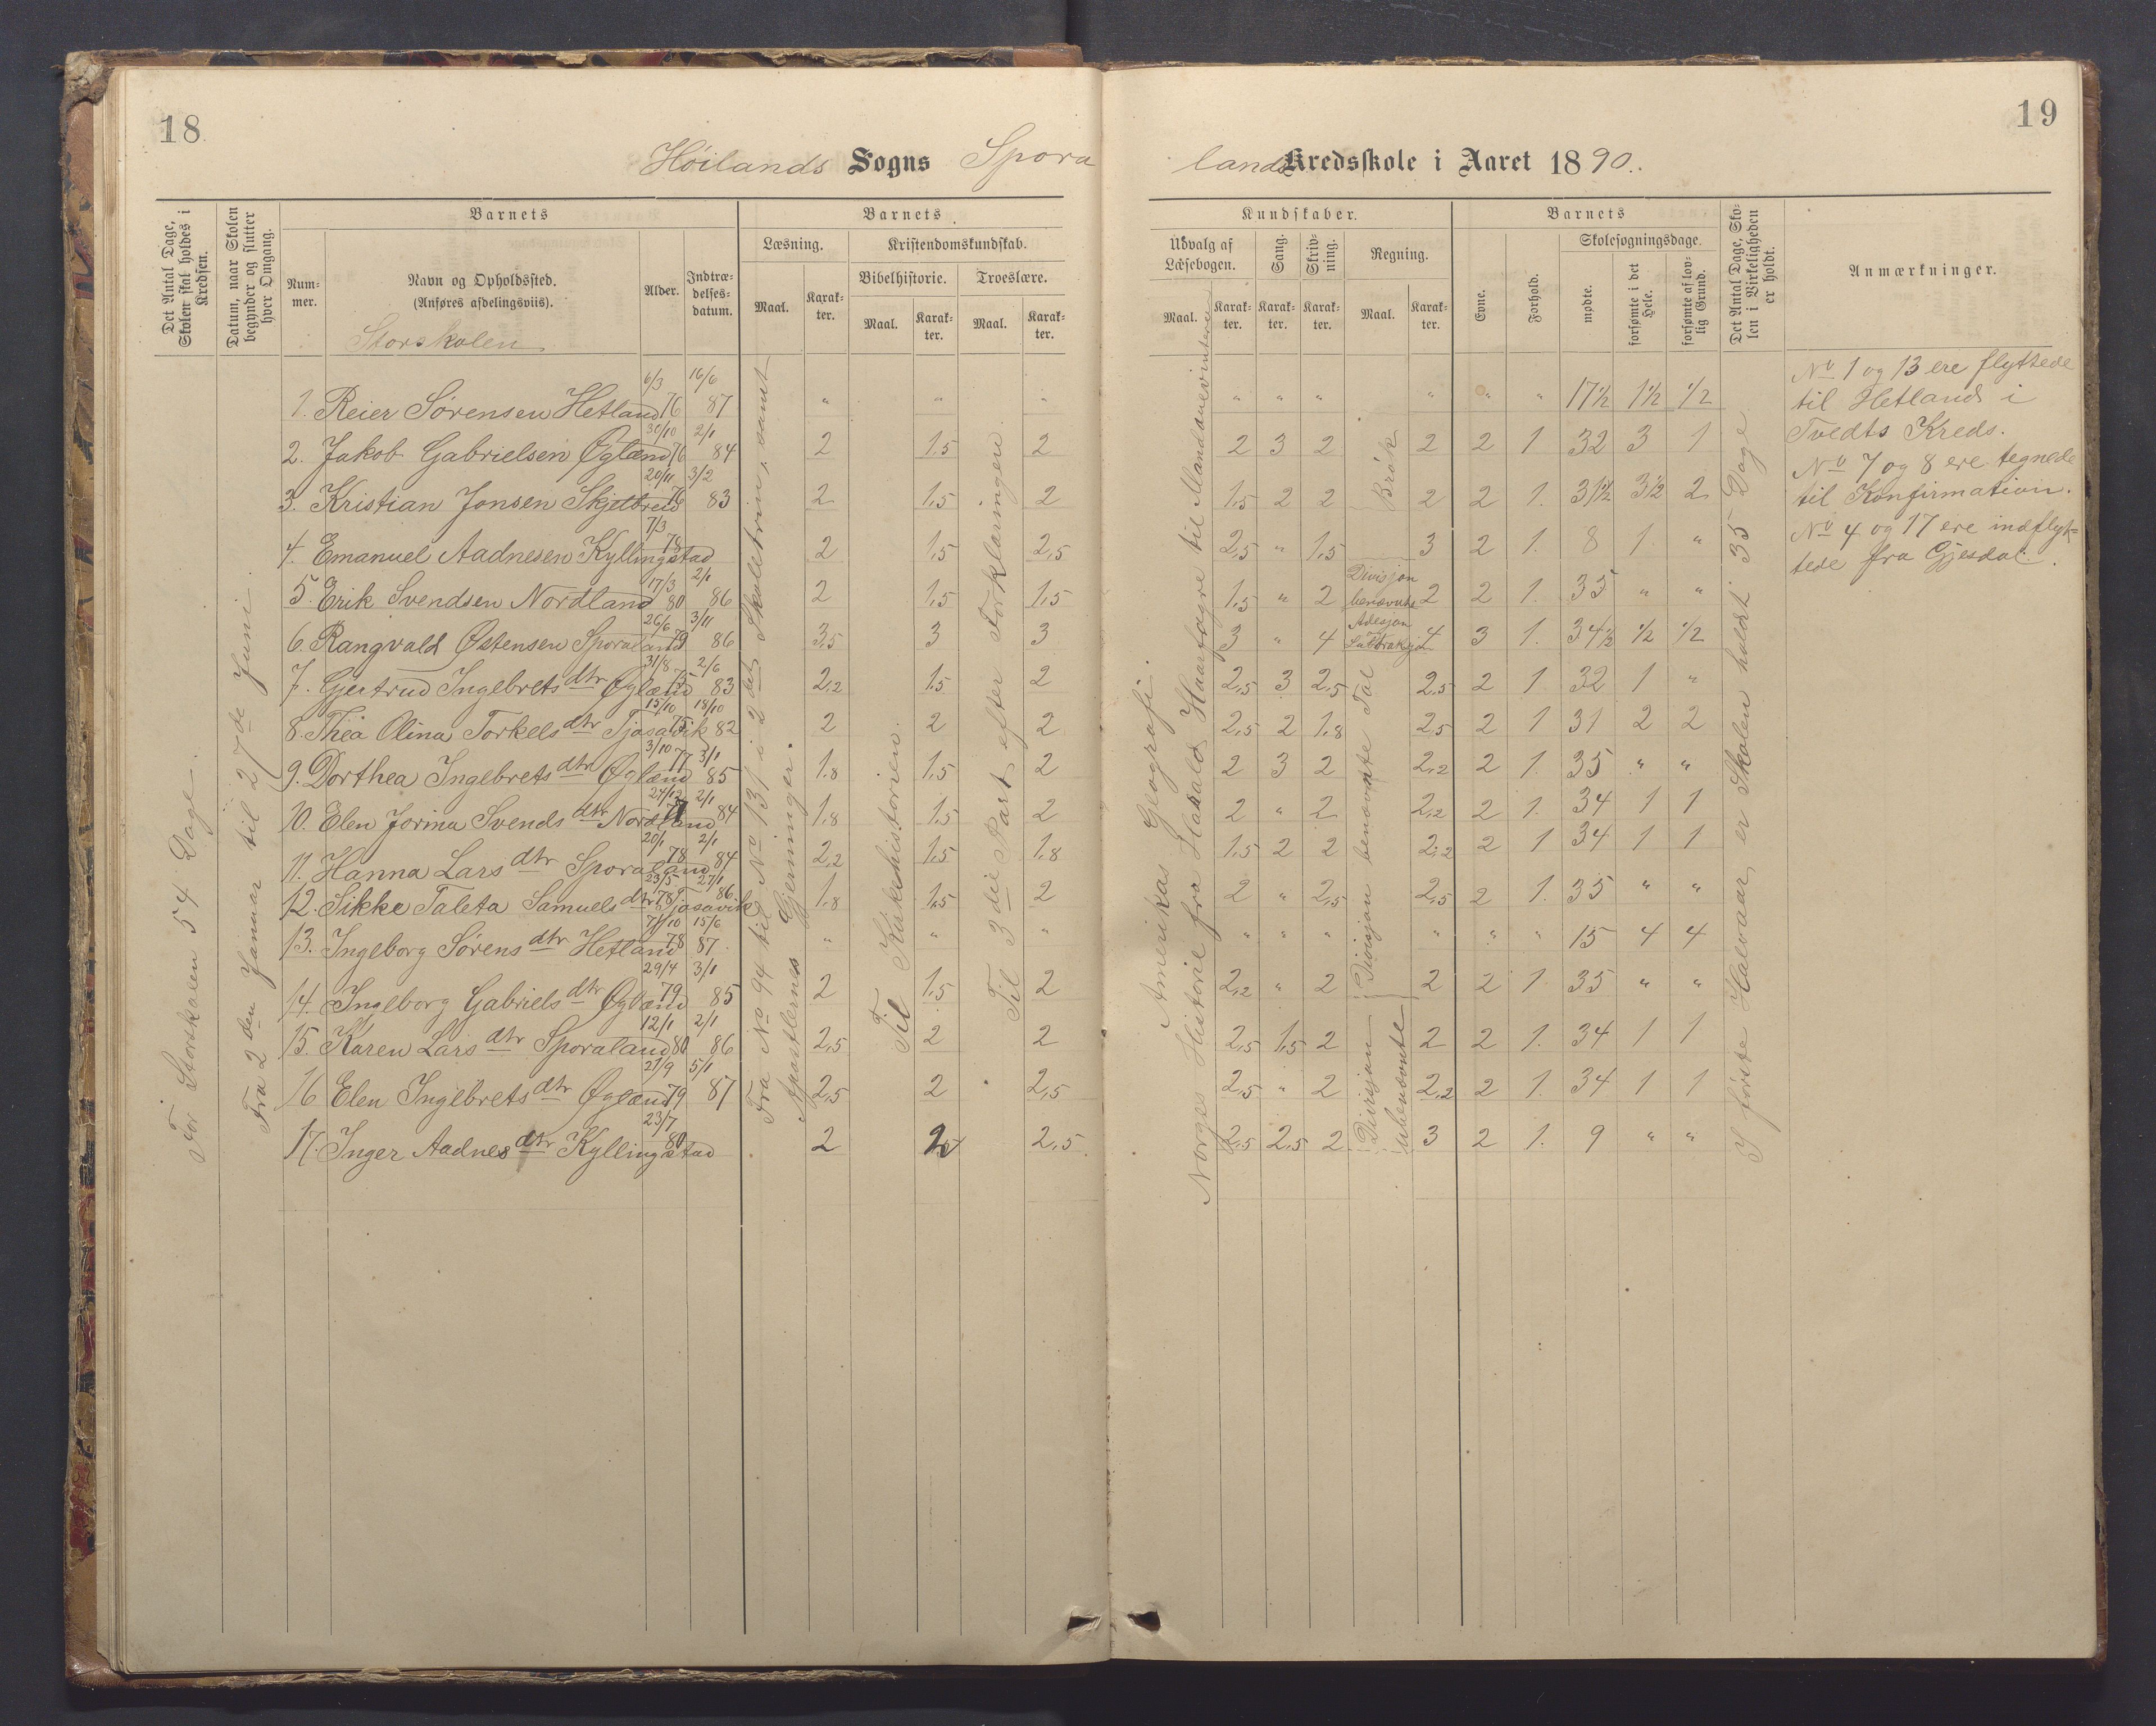 18
Höilands Sogns Spora
Det Antal Dage, Skolen skal holdes i Kredsen.
Datum, naar Skolen begynder og slutter hver Omgang.
Barnets
Barnets
Nummer.
Navn og Opholdssted.
(Anføres afdelingsviis).
Alder.
Indtrædelsesdatum.
Læsning.
Kristendomskundskab.
Maal.
Karakter.
Bibelhistorie.
Troeslære.
Maal.
Karakter.
Maal.
Karakter.
Storskolen
For Storskolen 54 Dage.
Fra 2den Januar til 27de Juni.
1. Reier Sørensen Hetland 6/3 76 16/6 87 " " "
2. Jakob Gabrielsen Øglænd 30/10 76 2/1 84 2 1.5 2
3. Kristian Jonsen Skjelbreid 20/11 76 3/2 83 2 1.5 2
4. Emanuel Aadnesen Kyllingstad 7/3 78 2 1.5 2,5
5. Erik Svendsen Nordland 17/3 80 2/1 86 2 1.5 1.5
6. Rangvald Østensen Sporaland 26/6 79 3/11 86 3,5 3 3
7. Gjertrud Ingebretsdtr Øglænd 31/8 75 2/6 83 2,2 1.5 2
8. Thea Olina Torkelsdtr Tjosavik 15/10 75 18/10 82 2 2 2
9. Dorthea Ingebretsdtr Øglænd 3/10 77 3/1 85 1.8 1.5 2
10. Elen Jorina Svendsdtr Nordland 27/12 77 2/1 84 1.8 1.5 2
11. Hanna Larsdtr Sporaland 20/1 78 2/1 84 2,2 1.5 1.8
12. Sikke Taleta Samuelsdtr Tjosavik 23/5 78 27/1 86 1.8 1.5 2
13. Ingeborg Sørensdtr Hetland 7/10 78 15/6 87 " " "
14. Ingeborg Gabrielsdtr Øglænd 29/4 79 3/1 85 2 1.5 2
15. Karen Larsdtr Sporaland 12/1 80 2/1 86 2,5 2 2
16 Elen Ingebretsdtr Øglænd 27/9 79 5/1 87 2,5 2 2,5
17. Inger Aadnesdtr Kyllingstad 23/7 80 2 2,5
Fra No 94 til No 131 i 2det Skoletrin, samt
Apostlernes Gjerninger.
Til Kirkehistorien.
Til 3die Part efter Forklaringen.
19
lands Kredsskole i Aaret 1890.
Kundskaber.
Barnets
Det Antal Dage, Skolen i Virkeligheden er holdt.
Anmærkninger.
Udvalg af Læsebogen.
Sang.
Skrivning.
Regning.
Evne.
Forhold.
Skolesøgningsdage.
Maal.
Karakter.
Karakter.
Karakter.
Maal.
Karakter.
mødte.
forsømte i det Hele.
forsømte af lovlig Grund.
" " " " " " 17 1/2 1 1/2 1/2
2 3 2 2 2 1 32 3 1
1.5 2 2 2 2 1. 31 1/2 3 1/2 2
2,5 " 1.5 3 2 1. 8 1 "
1.5 " 2 2 2 1. 35 " "
3 " 4 4 3 1. 34 1/2 1/2 1/2
2,5 3 2,5 2,5 2 1 32 1 "
2,5 2 1.8 2,5 2 1 31 2 2
2 3 2 2,2 2 1. 35 " "
2 " 2 2,2 2 1. 34 1 1
1.5 2 2 2,2 2 1 34 1 1
2 " 2,5 2,5 2 1. 35 " "
" " " " " " 15 4 4
2,2 " 2 2 2 1. 35 " "
2,5 1,5 2 2 2 1. 34 1 1
2,5 " 2 2,2 2 1. 34 1 1
2,5 2,5 2 3 2 1. 9 " "
Norges Historie fra Harald Haarfagre til
Amerikas Geografi.
Brök
Divisjon
benævnte
Adesjon
og
Divisjon benævnte Tal
Divisjon
ubenævnte
I første Halvaar er Skolen holdt 35 Dage
No 1 og 13 ere flyttede
til Hetland i
Tvedts Kreds.
No 7 og 8 ere tegnede
til Konfirmation.
No 4 og 17 ere indflyt-
tede fra Gjesdal.